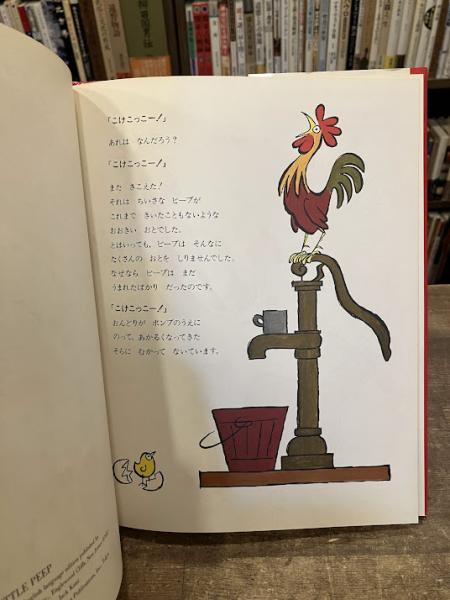 「こけこっこー!」
あれは なんだろう?
「こけこっこー!」
また きこえた!
それは ちいさな ピープが
これまで きいたこともないような
おおきい おとでした。
とはいっても、ピープは そんなに
たくさんの おとを しりませんでした。
なぜなら ピープは まだ
うまれたばかり だったのです。
「こけこっこー!」
おんどりが ポンプのうえに
のって、あかるくなってきた
そらに むかって ないています。
TTLE PEEP
English language edition published by
Englewood Cliffs, New Jersey
Jack Kent